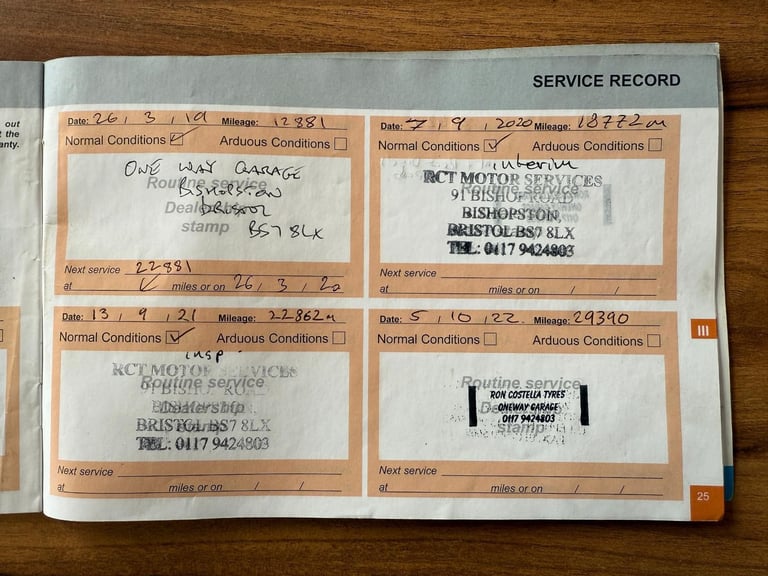 out
t the
anty.
SERVICE RECORD
Date: 26, 3, 19 Mileage: 12881
Normal Conditions Arduous Conditions
ONE WAY GARAGE
BISHOPSTON
BRISTOL
BS7 8LX
Routine service
Dealership
stamp
Next service 22881
at miles or on 26, 3, 20
Date: 7, 9, 2020 Mileage: 18772m
Normal Conditions Arduous Conditions
interim
RCT MOTOR SERVICES
91 BISHOP ROAD
BISHOPSTON,
BRISTOL BS7 8LX
TEL: 0117 9424803
Routine service
Next service
at miles or on / /
Date: 13, 9, 21 Mileage: 22862m
Normal Conditions Arduous Conditions
insp
RCT MOTOR SERVICES
91 BISHOP ROAD
BISHOPSTON,
BRISTOL BS7 8LX
TEL: 0117 9424803
Routine service
Dealership
stamp
Next service
at miles or on / /
Date: 5, 10, 22. Mileage: 29390
Normal Conditions Arduous Conditions
Routine service
Dealership
stamp
RON COSTELLA TYRES
ONEWAY GARAGE
0117 9424803
Next service
at miles or on / /
III
25